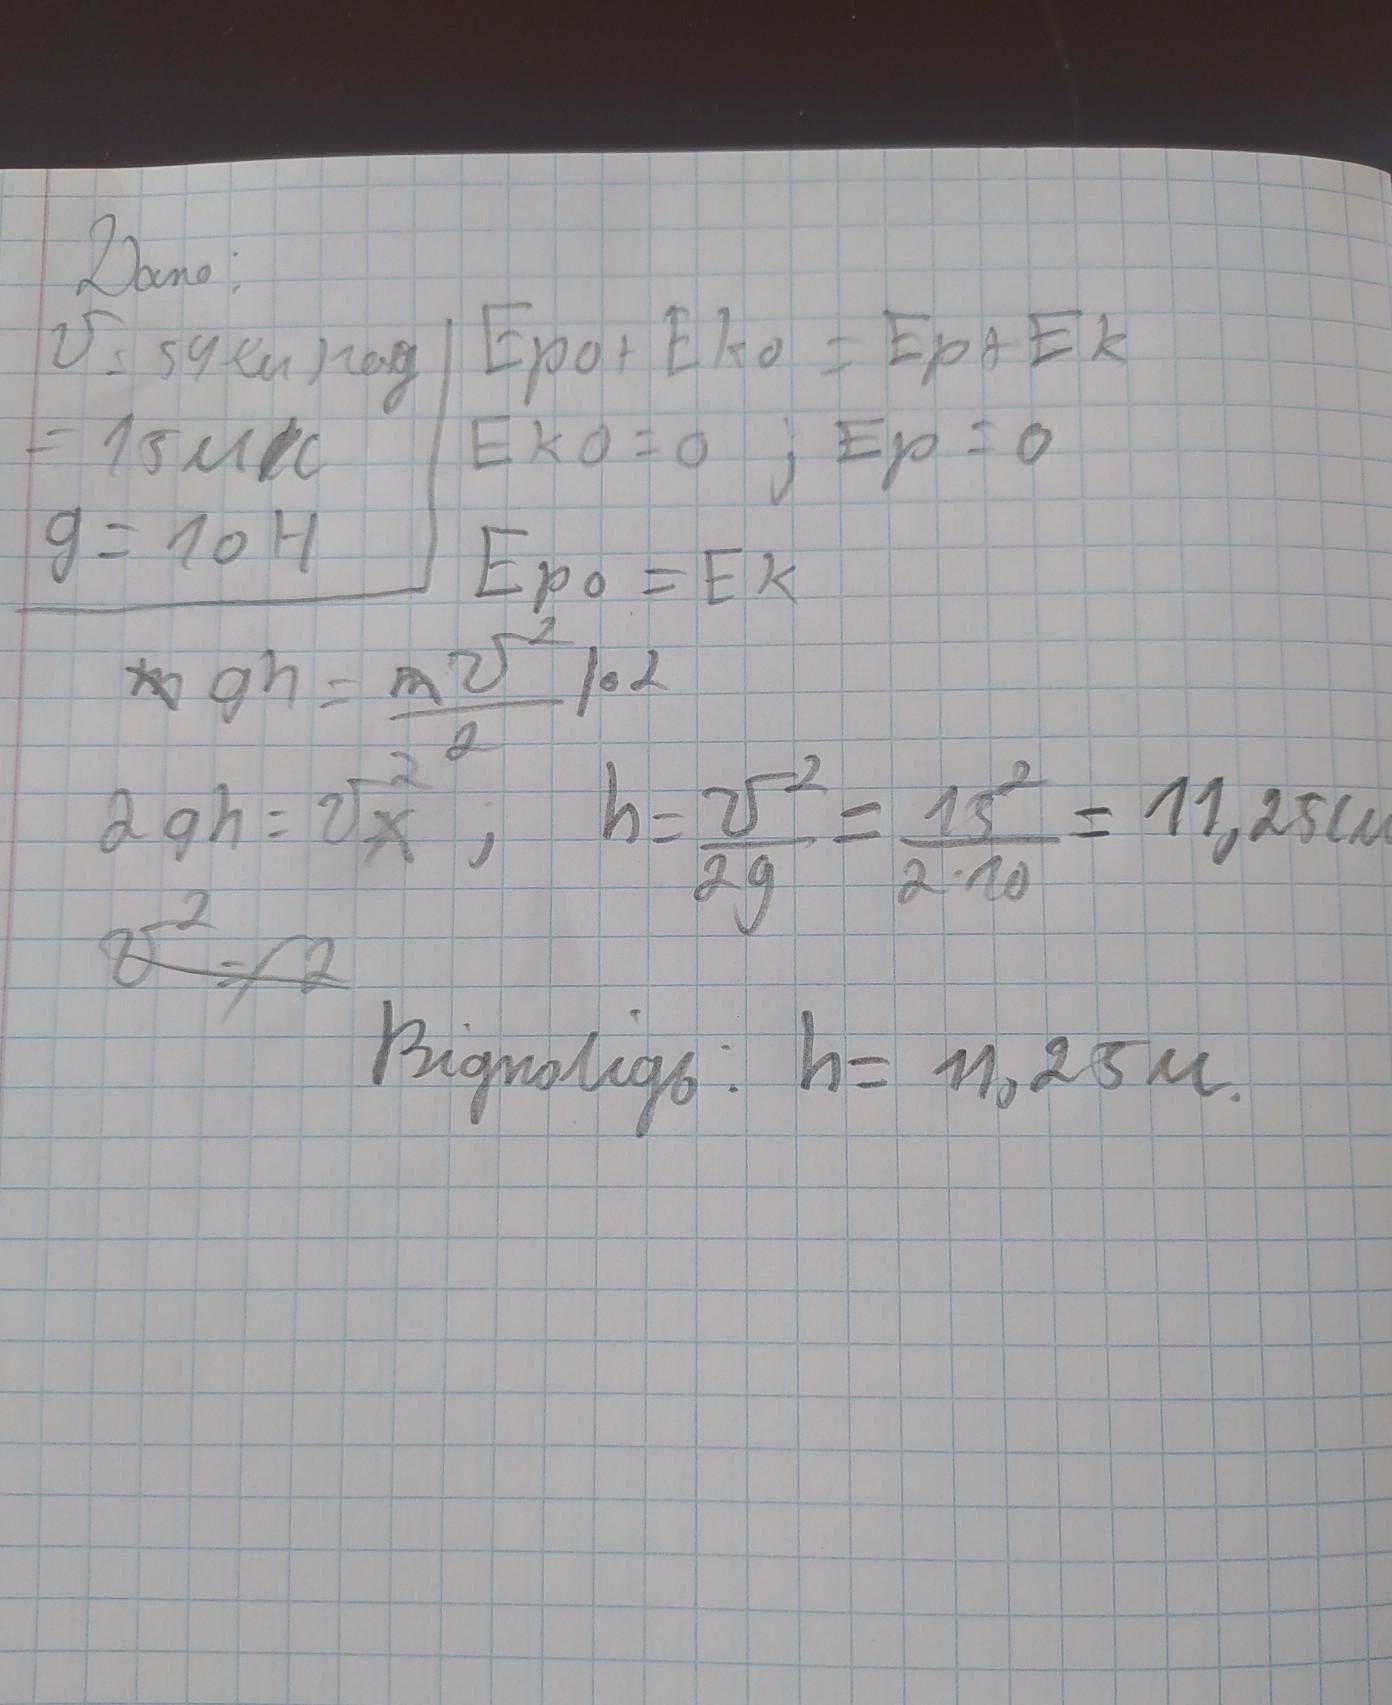 Дано:
v = 54 км/год
= 15 м/с
g = 10 Н
Epo + Eko = Ep + Ek
Eko = 0 ; Ep = 0
Epo = Ek
mgh = mv²/2 |·2
2gh = v² ; h = v²/2g = 15²/2·10 = 11,25 (м
v² = 2
Відповідь: h = 11,25 м.